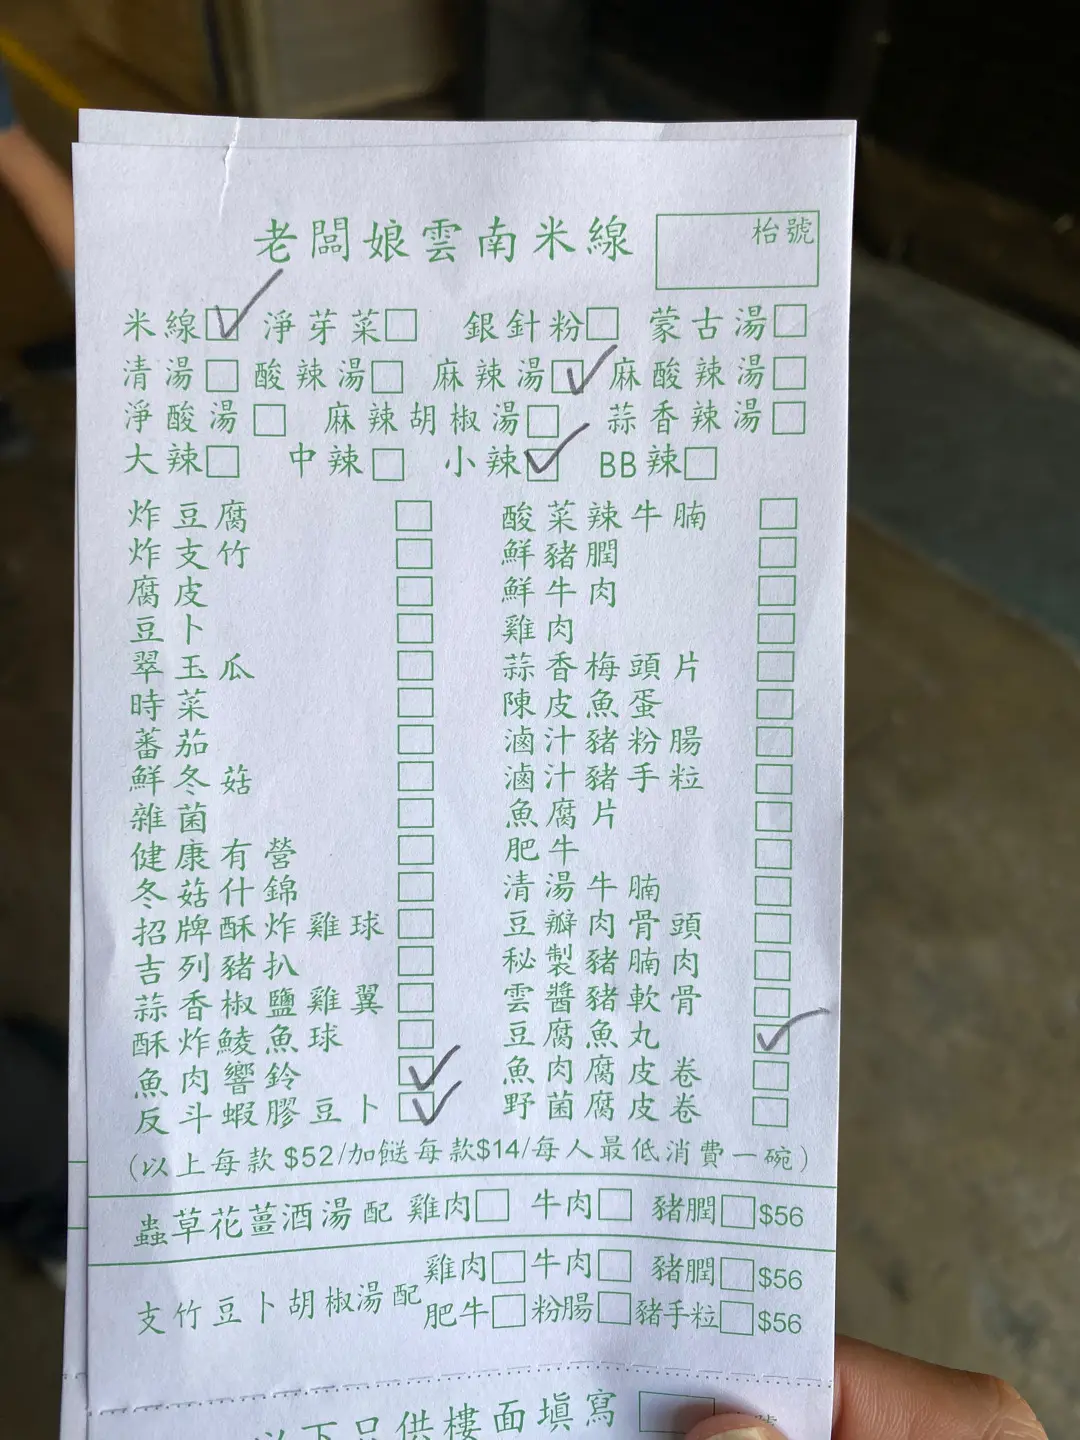 老闆娘雲南米線 枱號
米線 淨芽菜 銀針粉 蒙古湯
清湯 酸辣湯 麻辣湯 麻酸辣湯
淨酸湯 麻辣胡椒湯 蒜香辣湯
大辣 中辣 小辣 BB辣
炸豆腐 酸菜辣牛腩
炸支竹 鮮豬膶
腐皮 鮮牛肉
豆卜 雞肉
翠玉瓜 蒜香梅頭片
時菜 陳皮魚蛋
蕃茄 滷汁豬粉腸
鮮冬菇 滷汁豬手粒
雜菌 魚腐片
健康有營 肥牛
冬菇什錦 清湯牛腩
招牌酥炸雞球 豆瓣肉骨頭
吉列豬扒 秘製豬腩肉
蒜香椒鹽雞翼 雲醬豬軟骨
酥炸鯪魚球 豆腐魚丸
魚肉響鈴 魚肉腐皮卷
反斗蝦膠豆卜 野菌腐皮卷
(以上每款$52/加餸每款$14/每人最低消費一碗)
蟲草花薑酒湯配 雞肉 牛肉 豬膶 $56
雞肉 牛肉 豬膶 $56
支竹豆卜胡椒湯配
肥牛 粉腸 豬手粒 $56
以下只供樓面填寫